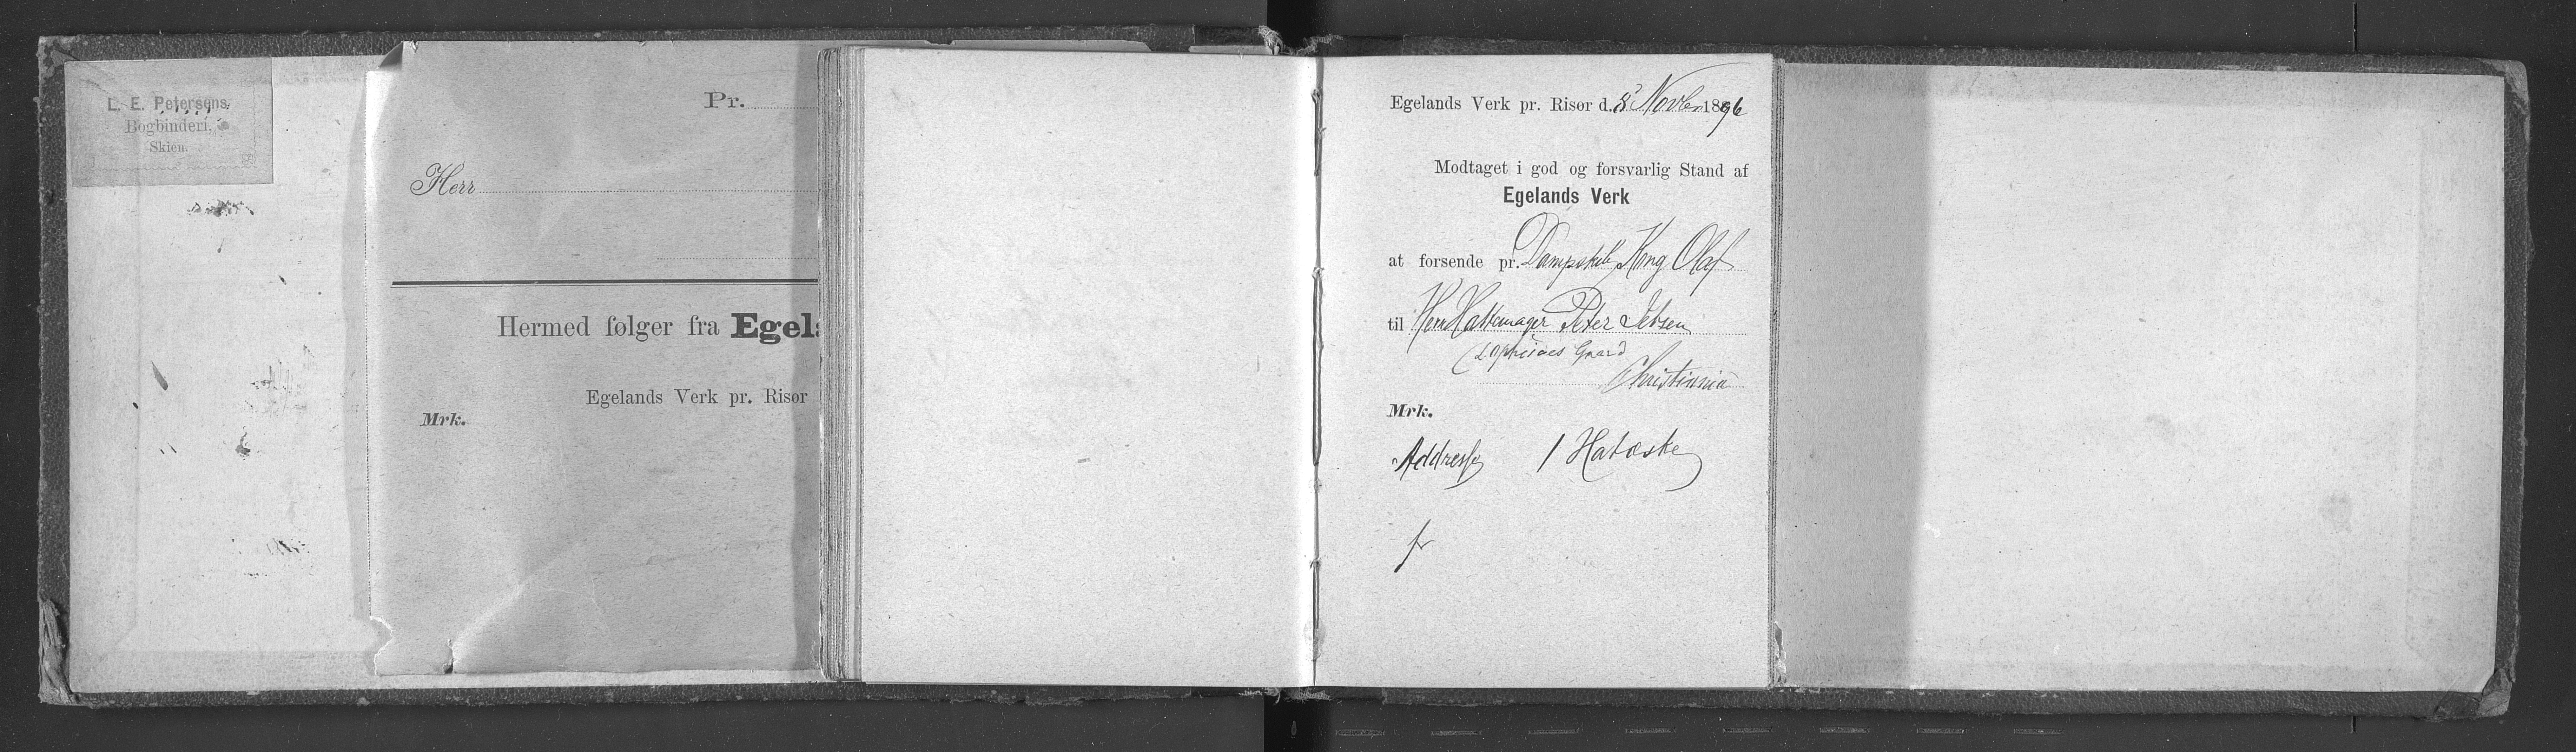 L. E. Petersens
Bogbinderi,
Skien.
Pr.
Herr
Hermed følger fra Egel
Egelands Verk pr. Risør
Mrk.
Egelands Verk pr. Risør d. 8' Novbr 1896
Modtaget i god og forsvarlig Stand af
Egelands Verk
at forsende pr. Dampskib Kong Olaf
til Herr Hattemager Peter Jebsen
Gaard
Christiania
Mrk.
Addresse 1 Hatæske
fr